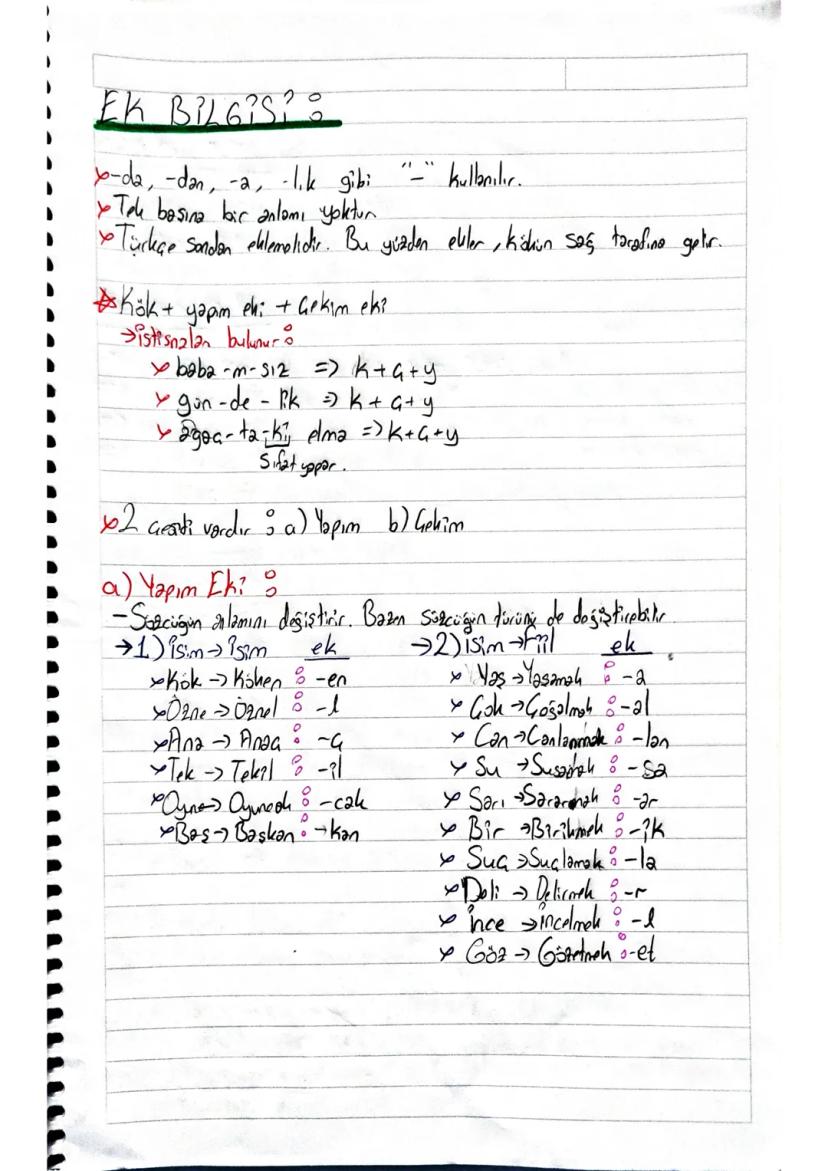 EK BİLGİSİ :
-da, -dan, -a, -lık gibi "-" kullanılır.
Tek başına bir anlamı yoktur
Türkçe sondan eklemelidir. Bu yüzden ekler, kökün sağ tarafına gelir.
Kök + yapım eki + Çekim eki
→ istisnaları bulunur :
baba-m-sız => K+Ç+y
gün-de-lik => K+Ç+y
ağaç-ta-ki elma => K+Ç+y
Sıfat yapar.
2 çeşiti vardır ; a) Yapım b) Çekim
a) Yapım Eki :
- Sözcüğün anlamını değiştirir. Bazen sözcüğün türünü de değiştirebilir
→ 1) İsim → İsim ek
Kök → Köken : -en
Özne → Öznel : -l
Ana → Anaç : -ç
Tek → Tekil : -il
Oyna → Oyuncak : -cak
Baş → Başkan : -kan
→ 2) İsim → Fiil ek
Yaş → Yaşamak : -a
Çok → Çoğalmak : -al
Can → Canlanmak : -lan
Su → Susamak : -sa
Sarı → Sararmak : -ar
Bir → Birikmek : -ik
Suç → Suçlamak : -la
Deli → Delirmek : -r
İnce → incelmek : -l
Göz → Gözetmek : -et